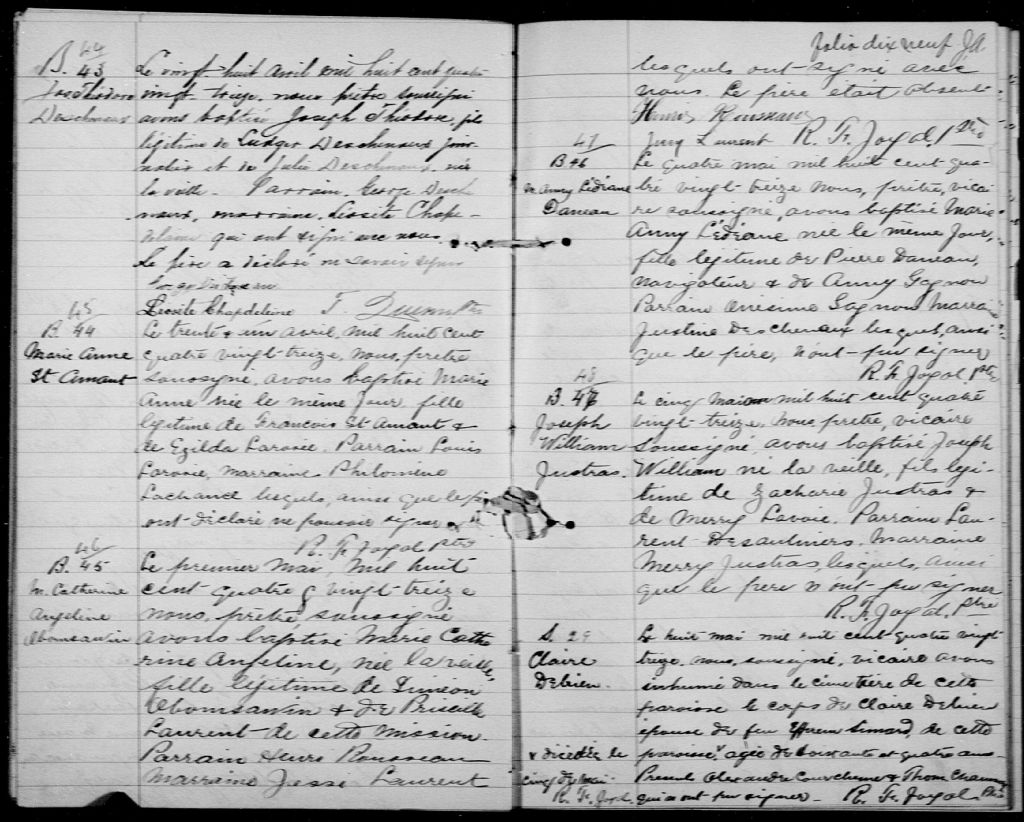 44
B. 43
Jos Théodore
Deschenaux
Le vingt huit avril mil huit cent quatre
vingt treize, nous prêtre soussigné
avons baptisé Joseph Théodore, fils
légitime de Ludger Deschenaux jour-
nalier et de Julie Deschenaux, né
la veille. Parrain, George Desch
naux, marraine, Lissite Chape-
delaine qui ont signé avec nous.
Le père a déclaré ne savoir signer
Chapdeleine
45
B. 44
Marie Anne
St Amant
Le trente & un avril, mil huit cent
quatre vingt-treize, nous, prêtre
soussigné, avons baptisé Marie
Anne née le même jour, fille
légitime de Francois St Amant &
de Ezilda Lavoie. Parrain Louis
Lavoie, Marraine Philomène
Lachance lesquels, ainsi que le
ont déclaré ne pouvoir signer
R. Fr. Joyal Ptre
46
B. 45
M. Catherine
Angéline
Abomsawin
Le premier Mai, Mil huit
cent quatre vingt-treize
nous, prêtre, soussigné
avons baptisé Marie Cathe
rine Angeline, née la veille,
fille légitime de Siméon
Abomsawin & de Priscille
Laurent de cette mission.
Parrain Henri Rousseau
Marraine Jessi Laurent
folio dix neuf JA.
lesquels ont signé avec
nous. Le père était absent
Henri Rousseau
Laurent R. Fr. Joyal, Ptre
47
B 46
M. Anny Lédéane
Daneau
Le quatre mai mil huit cent qua-
tre vingt-treize nous, prêtre, vicai
re soussigné, avons baptisé Marie
Anny Lédéane née le même jour,
fille légitime de Pierre Daneau,
navigateur & de Anny Gagnon
Parrain Onésime Gagnon Marrai
Justine Deschenaux lesquels, ainsi
que le père, n'ont pu signer
R. Fr. Joyal Ptre
48
B. 47
Joseph
William
Justras.
Le cinq mai mil huit cent quatre
vingt treize, nous prêtre, vicaire
soussigné, avons baptisé Joseph
William né la veille, fils légi-
time de Zacharie Justras &
de Merry Lavoie. Parrain Lau-
rent Desaulniers. Marraine
Merry Justras, lesquels, ainsi
que le père n'ont pu signer
R. Fr. Joyal, Ptre
S. 29
Claire
Debien.
Le huit mai mil huit cent quatre vingt
treize, nous, soussigné, vicaire avons
inhumé dans le cimetière de cette
paroisse le corps de Claire Debien
épouse de feu Ephrem Simard, de cette
paroisse, agée de soixante et quatre ans
& décédée le
cinq de mai.
R. Fr. Joyal
Présents Alexandre Courchesne &
qui n'ont pu signer - R. Fr. Joyal Ptre